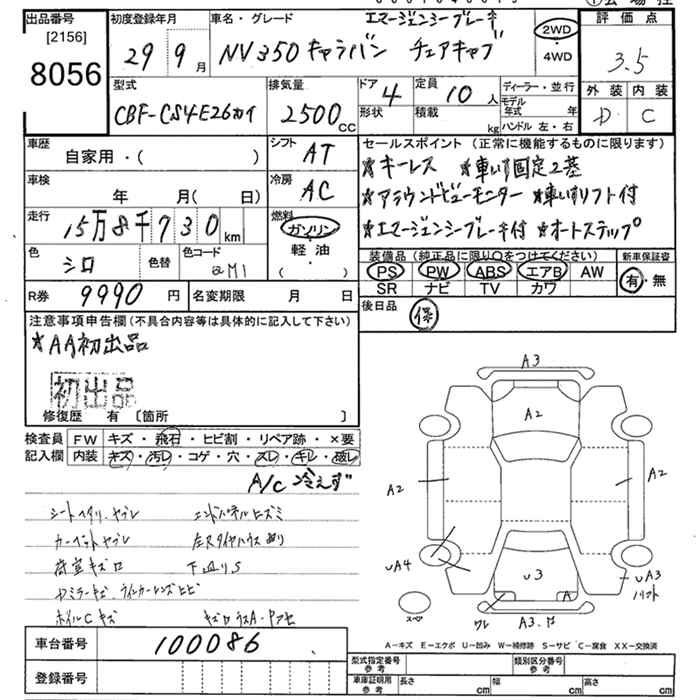 出品番号
[2156]
8056
初度登録年月
29 9月
車名・グレード
エマージェンシーブレーキ
NV350 キャラバン チェアキャブ
2WD
4WD
評価点
3.5
型式
CBF-CS4E26カイ
排気量
2500cc
ドア
4
形状
定員
10人
積載
kg
ディーラー・並行
モデル年式 年
ハンドル 左・右
外装 内装
D C
車歴
自家用・( )
シフト
AT
セールスポイント (正常に機能するものに限ります)
★キーレス ★車いす固定2基
★アラウンドビューモニター ★車いすリフト付
★エマージェンシーブレーキ付 ★オートステップ
車検
年 月( 日)
冷房
AC
走行
15万8千730km
燃料
ガソリン
軽油
( )
色
シロ
色替
色コード
QM1
装備品 (純正品に限り○をつけてください)
PS PW ABS エアB AW
SR ナビ TV カワ
新車保証書
有・無
R券
9990円
名変期限 月 日
後日品
保
注意事項申告欄(不具合内容等は具体的に記入して下さい)
★AA初出品
初出品
修復歴 有 〔箇所 〕
検査員記入欄
FW キズ・飛石・ヒビ割・リペア跡・×要
内装 キズ・汚レ・コゲ・穴・スレ・キレ・破レ
A/C 冷えず"
シートヘタリ、ヤブレ エンドパネルヒズミ
カーペットヤブレ
荷室キズ
Dミラーキズ、ウインカーレンズヒビ
ホイルCキズ
下廻りS
A3
A2
A2
A2
UA4
U3
A
UA3
リフト
ワレ
スペア
A-キズ E-エクボ U-凹み W-補修跡 S-サビ C-腐食 XX-交換済
車台番号
100086
登録番号
型式指定番号
参考
類別区分番号
参考
車庫証明用
参考
長さ cm 幅 cm 高さ cm